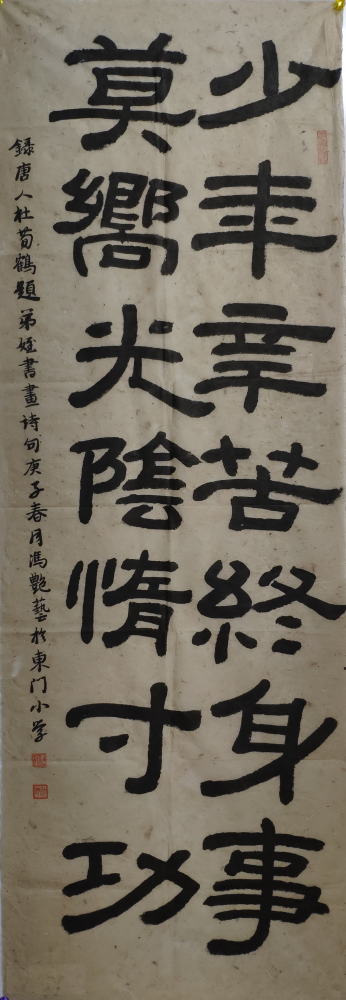 少年辛苦終身事
莫嚮光陰惰寸功
錄唐人杜荀鶴題弟姪書畫诗句庚子春月馮艷藝於東门小学